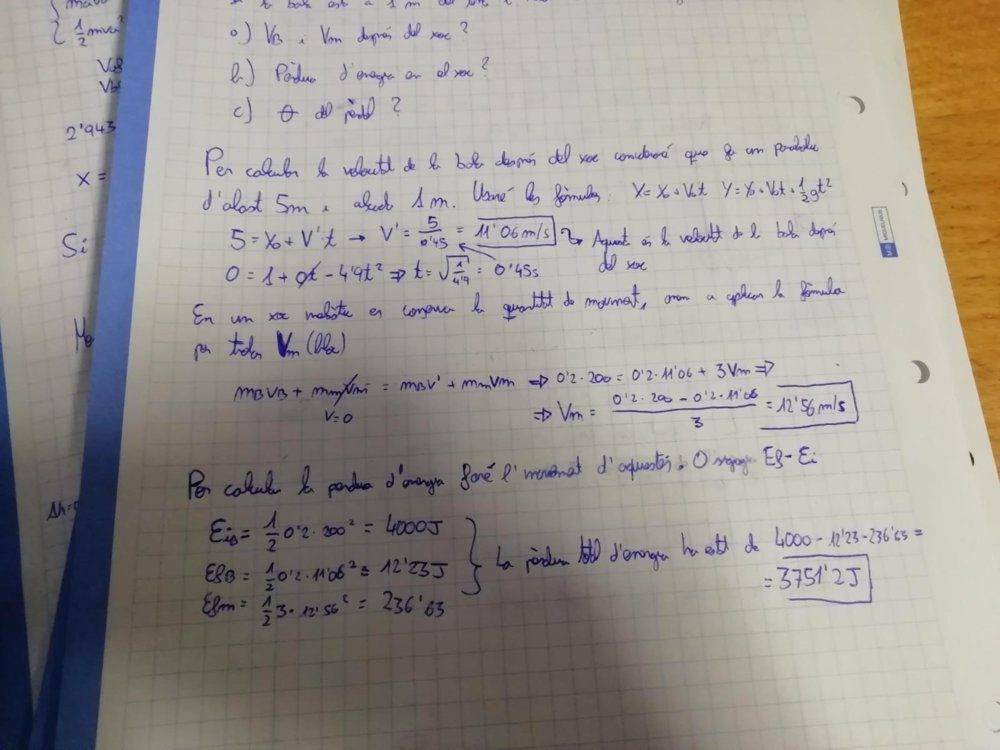 { 1/2 mv
a) VB i Vm després del xoc?
b) Pèrdua d'energia en el xoc?
c) θ del pèndol?
2'943
x =
Si
Per calcular la velocitat de la bola després del xoc consideraré que fa un paràbola
d'abast 5m i alçada 1m. Usaré les fórmules: X = X₀ + V₀t Y = Y₀ + V₀t + 1/2 gt²
5 = X₀ + V't → V' = 5/0'45 = 11'06 m/s → Aquesta és la velocitat de la bola després
del xoc
0 = 1 + 0t - 4'9t² ⇒ t = √(1/4'9) = 0'45s
En un xoc inelàstic es conserva la quantitat de moviment, anem a aplicar la fórmula
per trobar Vm (bloc)
mBVB + mmVmi = mBV' + mmVm ⇒ 0'2·200 = 0'2·11'06 + 3Vm ⇒
V=0
⇒ Vm = (0'2·200 - 0'2·11'06)/3 = 12'56 m/s
Per calcular la pèrdua d'energia faré l'increment d'aquestes. O sigui Ef - Ei
EiB = 1/2 0'2·200² = 4000J
EfB = 1/2 0'2·11'06² = 12'23J
Efm = 1/2 3·12'56² = 236'63
} La pèrdua total d'energia ha estat de 4000 - 12'23 - 236'63 =
= 3751'2J
Δh=